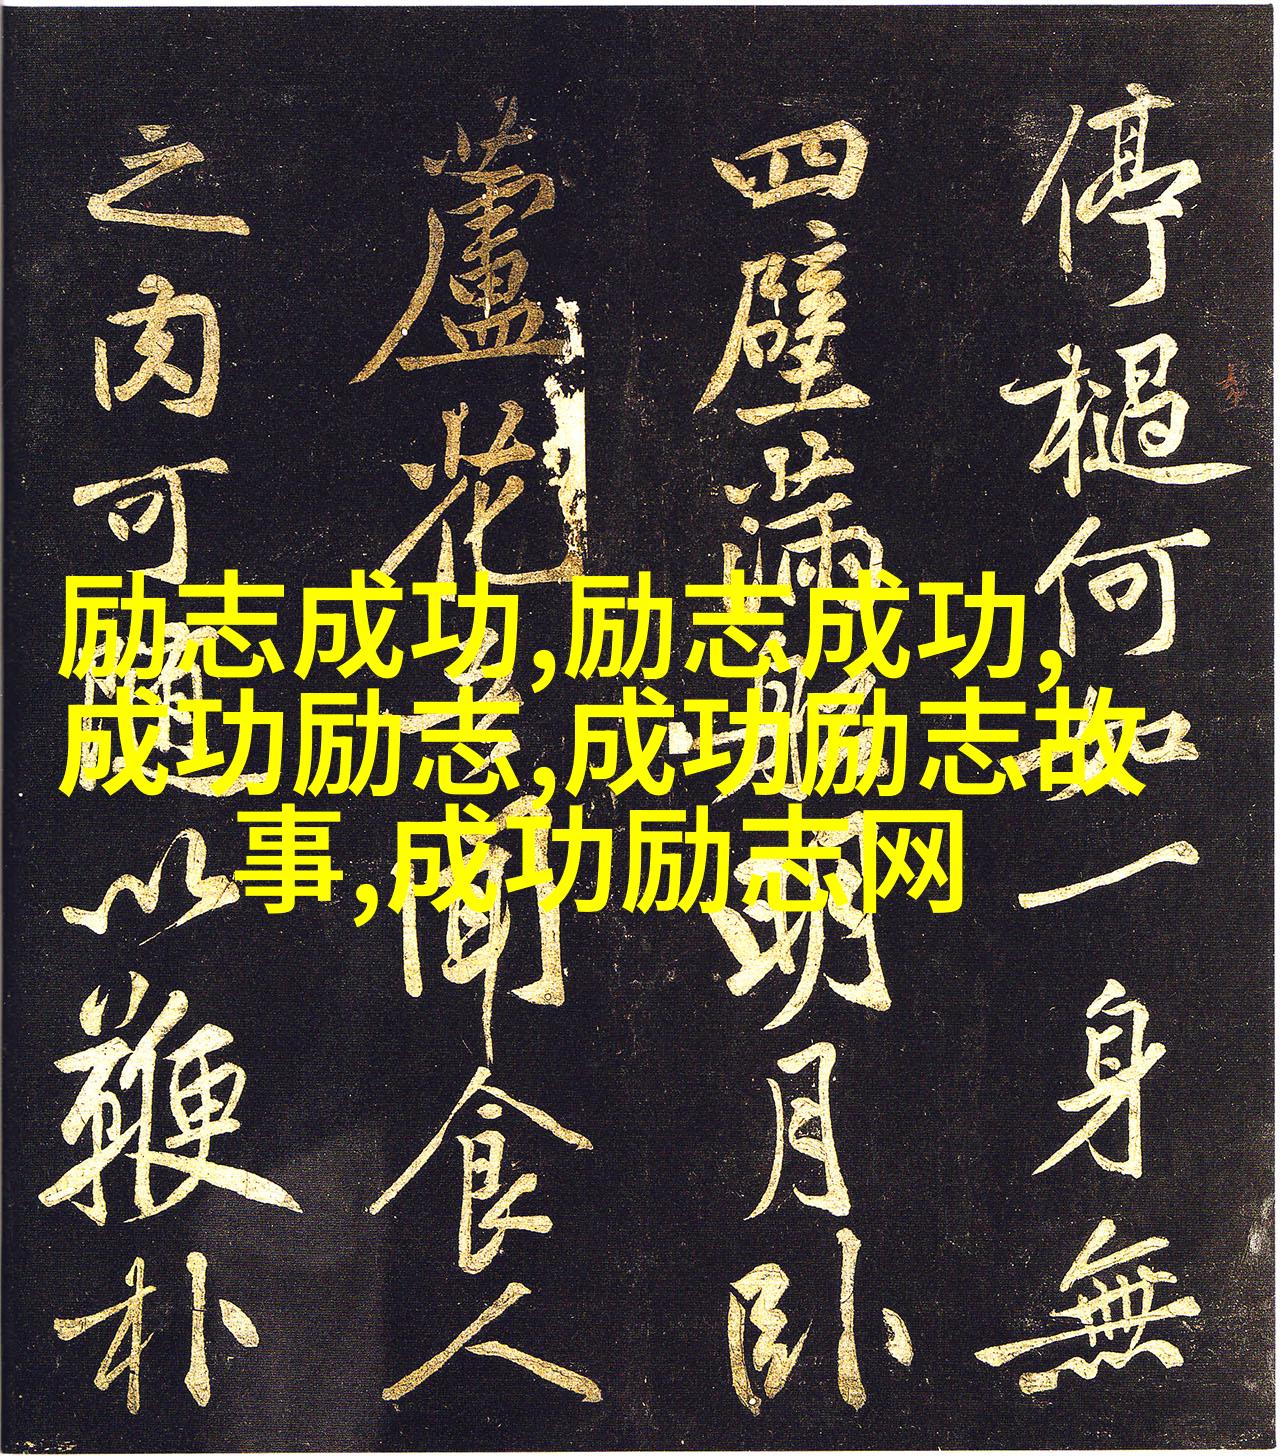 停檛何如一身無
四壁滿船明月臥
蘆花吾聞食人
之肉可隨以鞭朴
励志成功,励志成功,
成功励志,成功励志故
事,成功励志网